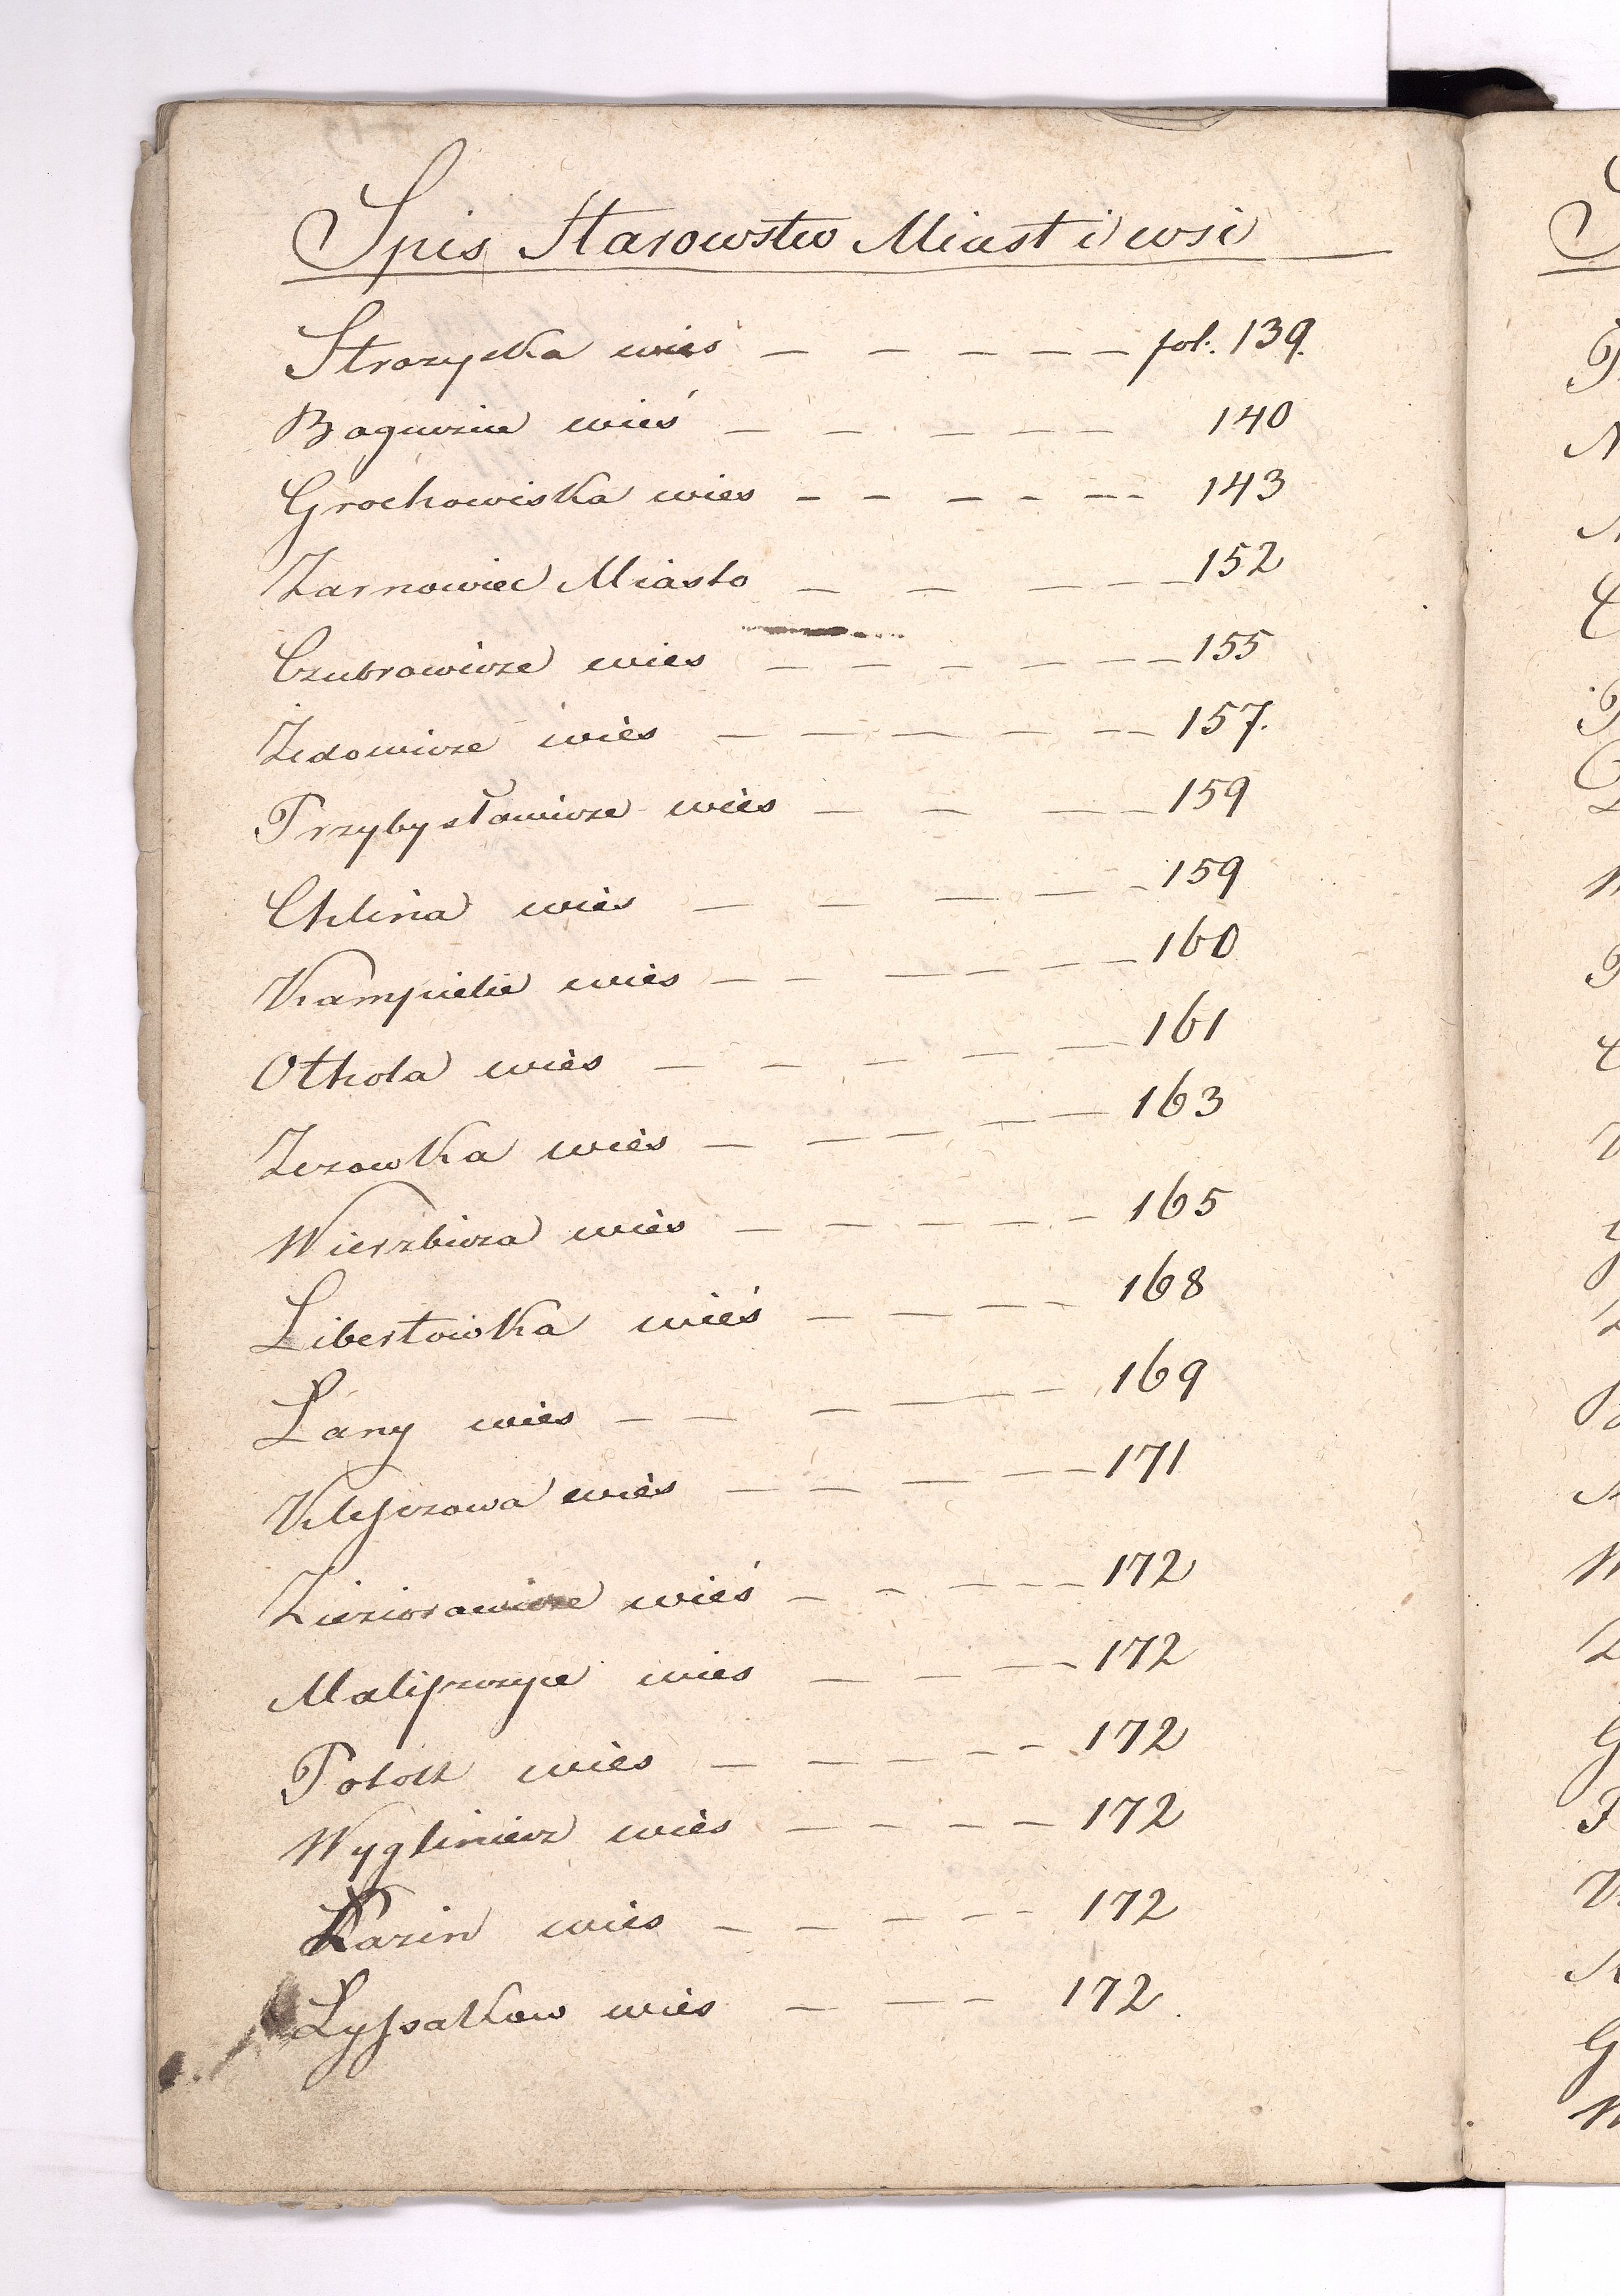 Spis Starowstw Miast i wsi
Strozyska wieś — — — — — fol. 139.
Bogucice wieś — — — — — 140
Grochowiska wies — — — — — 143
Zarnowiec Miasto — — — — — 152
Czubrowicze wies — — — — — — 155
Zedowicze wiés — — — — — — 157.
Przybysławicze wiés — — — — 159
Chlina wiés — — — — — 159
Kampielie wiés — — — — — — 160
Othola wiés — — — — — — 161
Zezowka wiés — — — — — 163
Wierzbicza wiés — — — — — 165
Libertowka wieś — — — — 168
Łany wiés — — — — — 169
Klessczowa wiés — — — — — 171
Zieziorowicze wieś — — — — — 172
Malisszcyce wiés — — — — 172
Potok wiés — — — — — 172
Wyglinicz wiés — — — — 172
Łazin wiés — — — — — 172
Łyssakow wiés — — — 172.